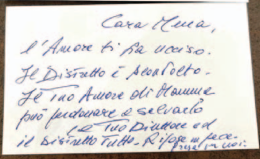 Cara Mena,
l'Amore ti ha ucciso.
Il Distretto è sconvolto.
Il Tuo Amore di Mamma
può perdonare e salvarlo
Tuo Direttore ed
il Distretto Tutto. Riposa in pace.